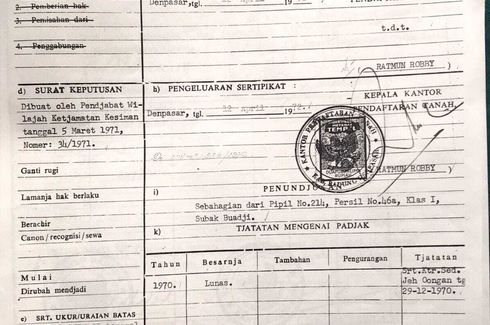 2. Pemberian hak
3. Pemisahan dari
4. Penggabungan
Denpasar, tgl.
t.d.t.
( RATMUN ROBBY )
d) SURAT KEPUTUSAN
Dibuat oleh Pendjabat Wi-
lajah Ketjamatan Kesiman
tanggal 5 Maret 1971,
Nomer: 34/1971.
Ganti rugi
Lamanja hak berlaku
Berachir
Canon / recognisi / sewa
Mulai
Dirubah mendjadi
e) SRT. UKUR/URAIAN BATAS
h) PENGELUARAN SERTIPIKAT :
Denpasar, tgl. 22 April 1972.
KEPALA KANTOR
PENDAFTARAN TANAH,
KANTOR PENDAFTARAN TANAH
KAB. BADUNG
(RATMUN ROBBY )
i) PENUNDJUK
Sebahagian dari Pipil No.214, Persil No.46a, Klas I,
Subak Buadji.
k) TJATATAN MENGENAI PADJAK
Tahun Besarnja Tambahan Pengurangan Tjatatan
1970. Lunas. Srt.Ktr.Sed.
Jeh Oongan tg
29-12-1970.